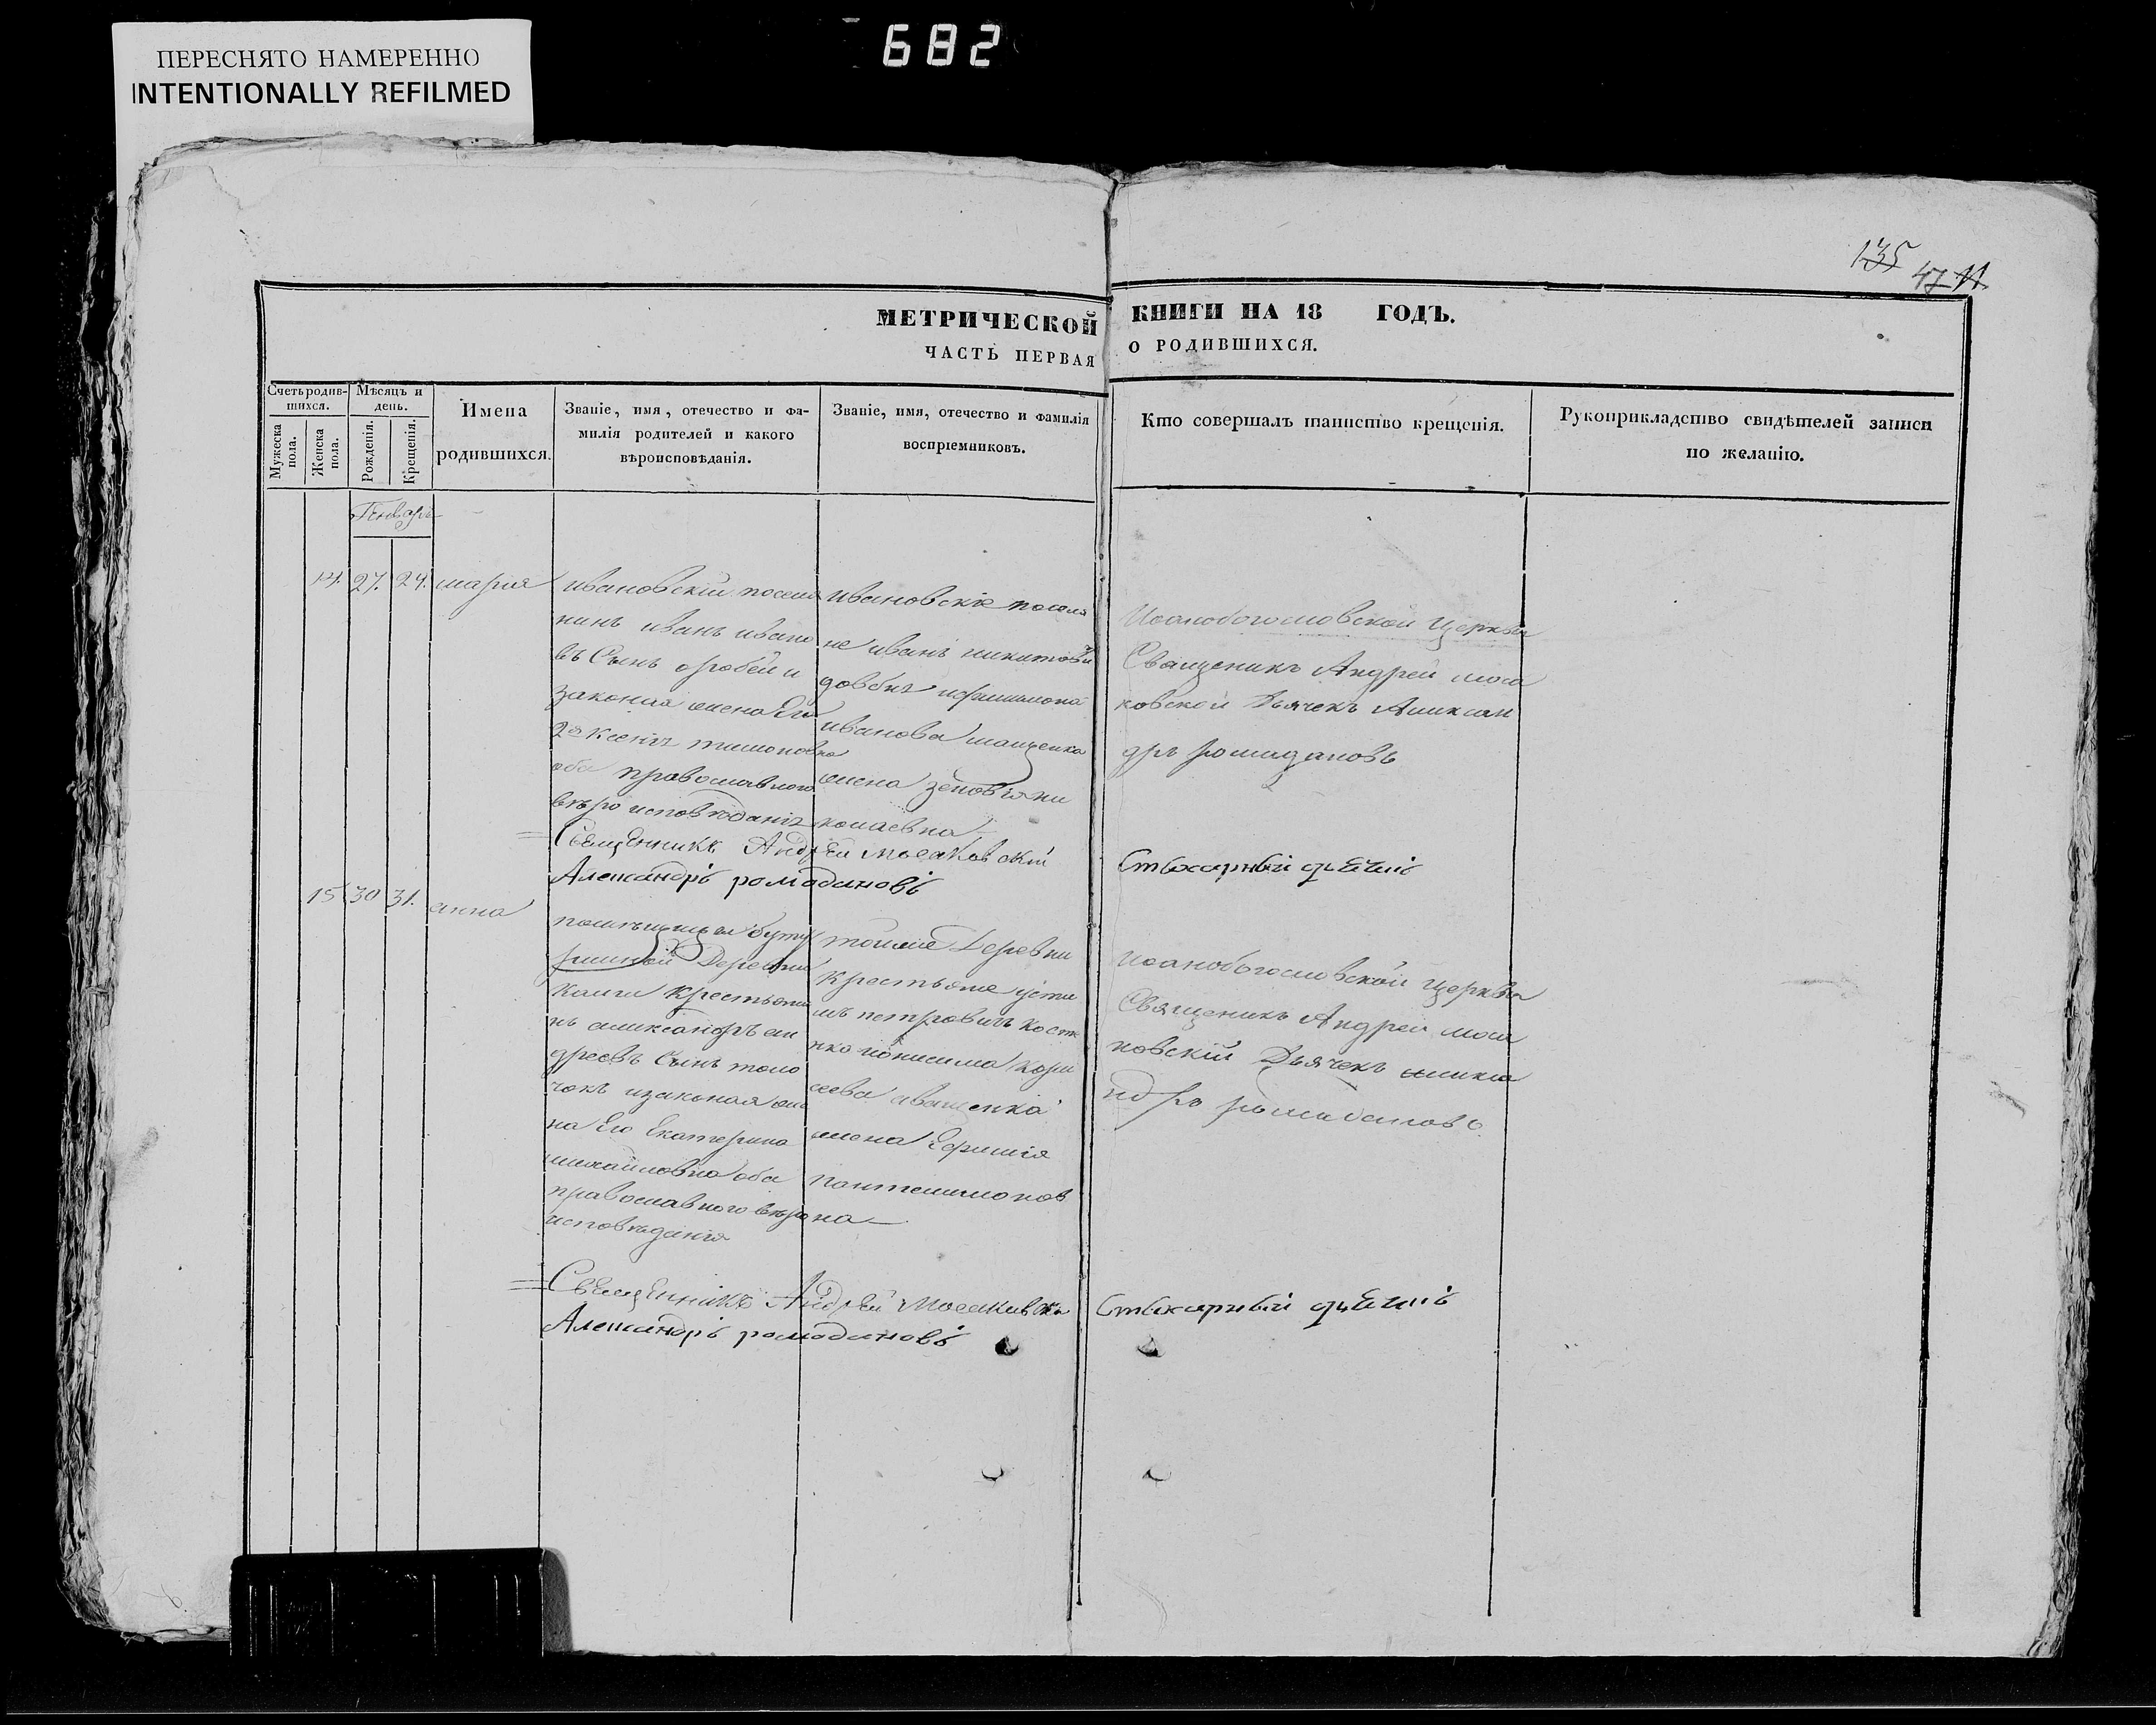 ПЕРЕСНЯТО НАМЕРЕННО
INTENTIONALLY REFILMED
682
135 47
МЕТРИЧЕСКОЙ КНИГИ НА 18 ГОДЪ.
ЧАСТЬ ПЕРВАЯ О РОДИВШИХСЯ.
Счетъ родив-
шихся.
Мужеска
пола.
Женска
пола.
Мѣсяцъ и
день.
Рожденія.
Крещенія.
Имена
родившихся.
Званіе, имя, отечество и фа-
милія родителей и какого
вѣроисповѣданія.
Званіе, имя, отечество и фамилія
воспріемниковъ.
Кто совершалъ таинство крещенія.
Рукоприкладство свидѣтелей записи
по желанію.
Генварь
14. 27. 29. мария
ивановскій посели
нинъ иванъ ивано
въ Сынъ и
законная жена Его
2я Ксения тимоновна
оба православного
вѣро исповѣданія
ивановскіе поселя
не иванъ никитовъ
иванова
жена зеновия ни
колаевна
Иоанобогословской Церкви
Священикъ Андрей моса
ковской Дьячекъ Аликсан
дръ ромадановъ
Священникъ Андрей мосаковскій
Александръ ромадановъ
Стихарный дьячекъ
15 30 31. анна
Деревни
крестьяни
нъ аликсандръ ан
дреевъ Сынъ толо
чокъ изаконная же
на Его Екатерина
михайловна оба
православного вѣро
исповѣданія
тойже Деревни
крестьяне усти
мъ петровичъ костю
жена Ефимия
пантелимонов
на
иоанобогословской церкви
Священикъ Андрей моса
ковскій Дьячекъ аликса
ндръ ромадановъ
Священникъ Андрей Мосаковскій
Александръ ромадановъ
Стихарный дьячекъ